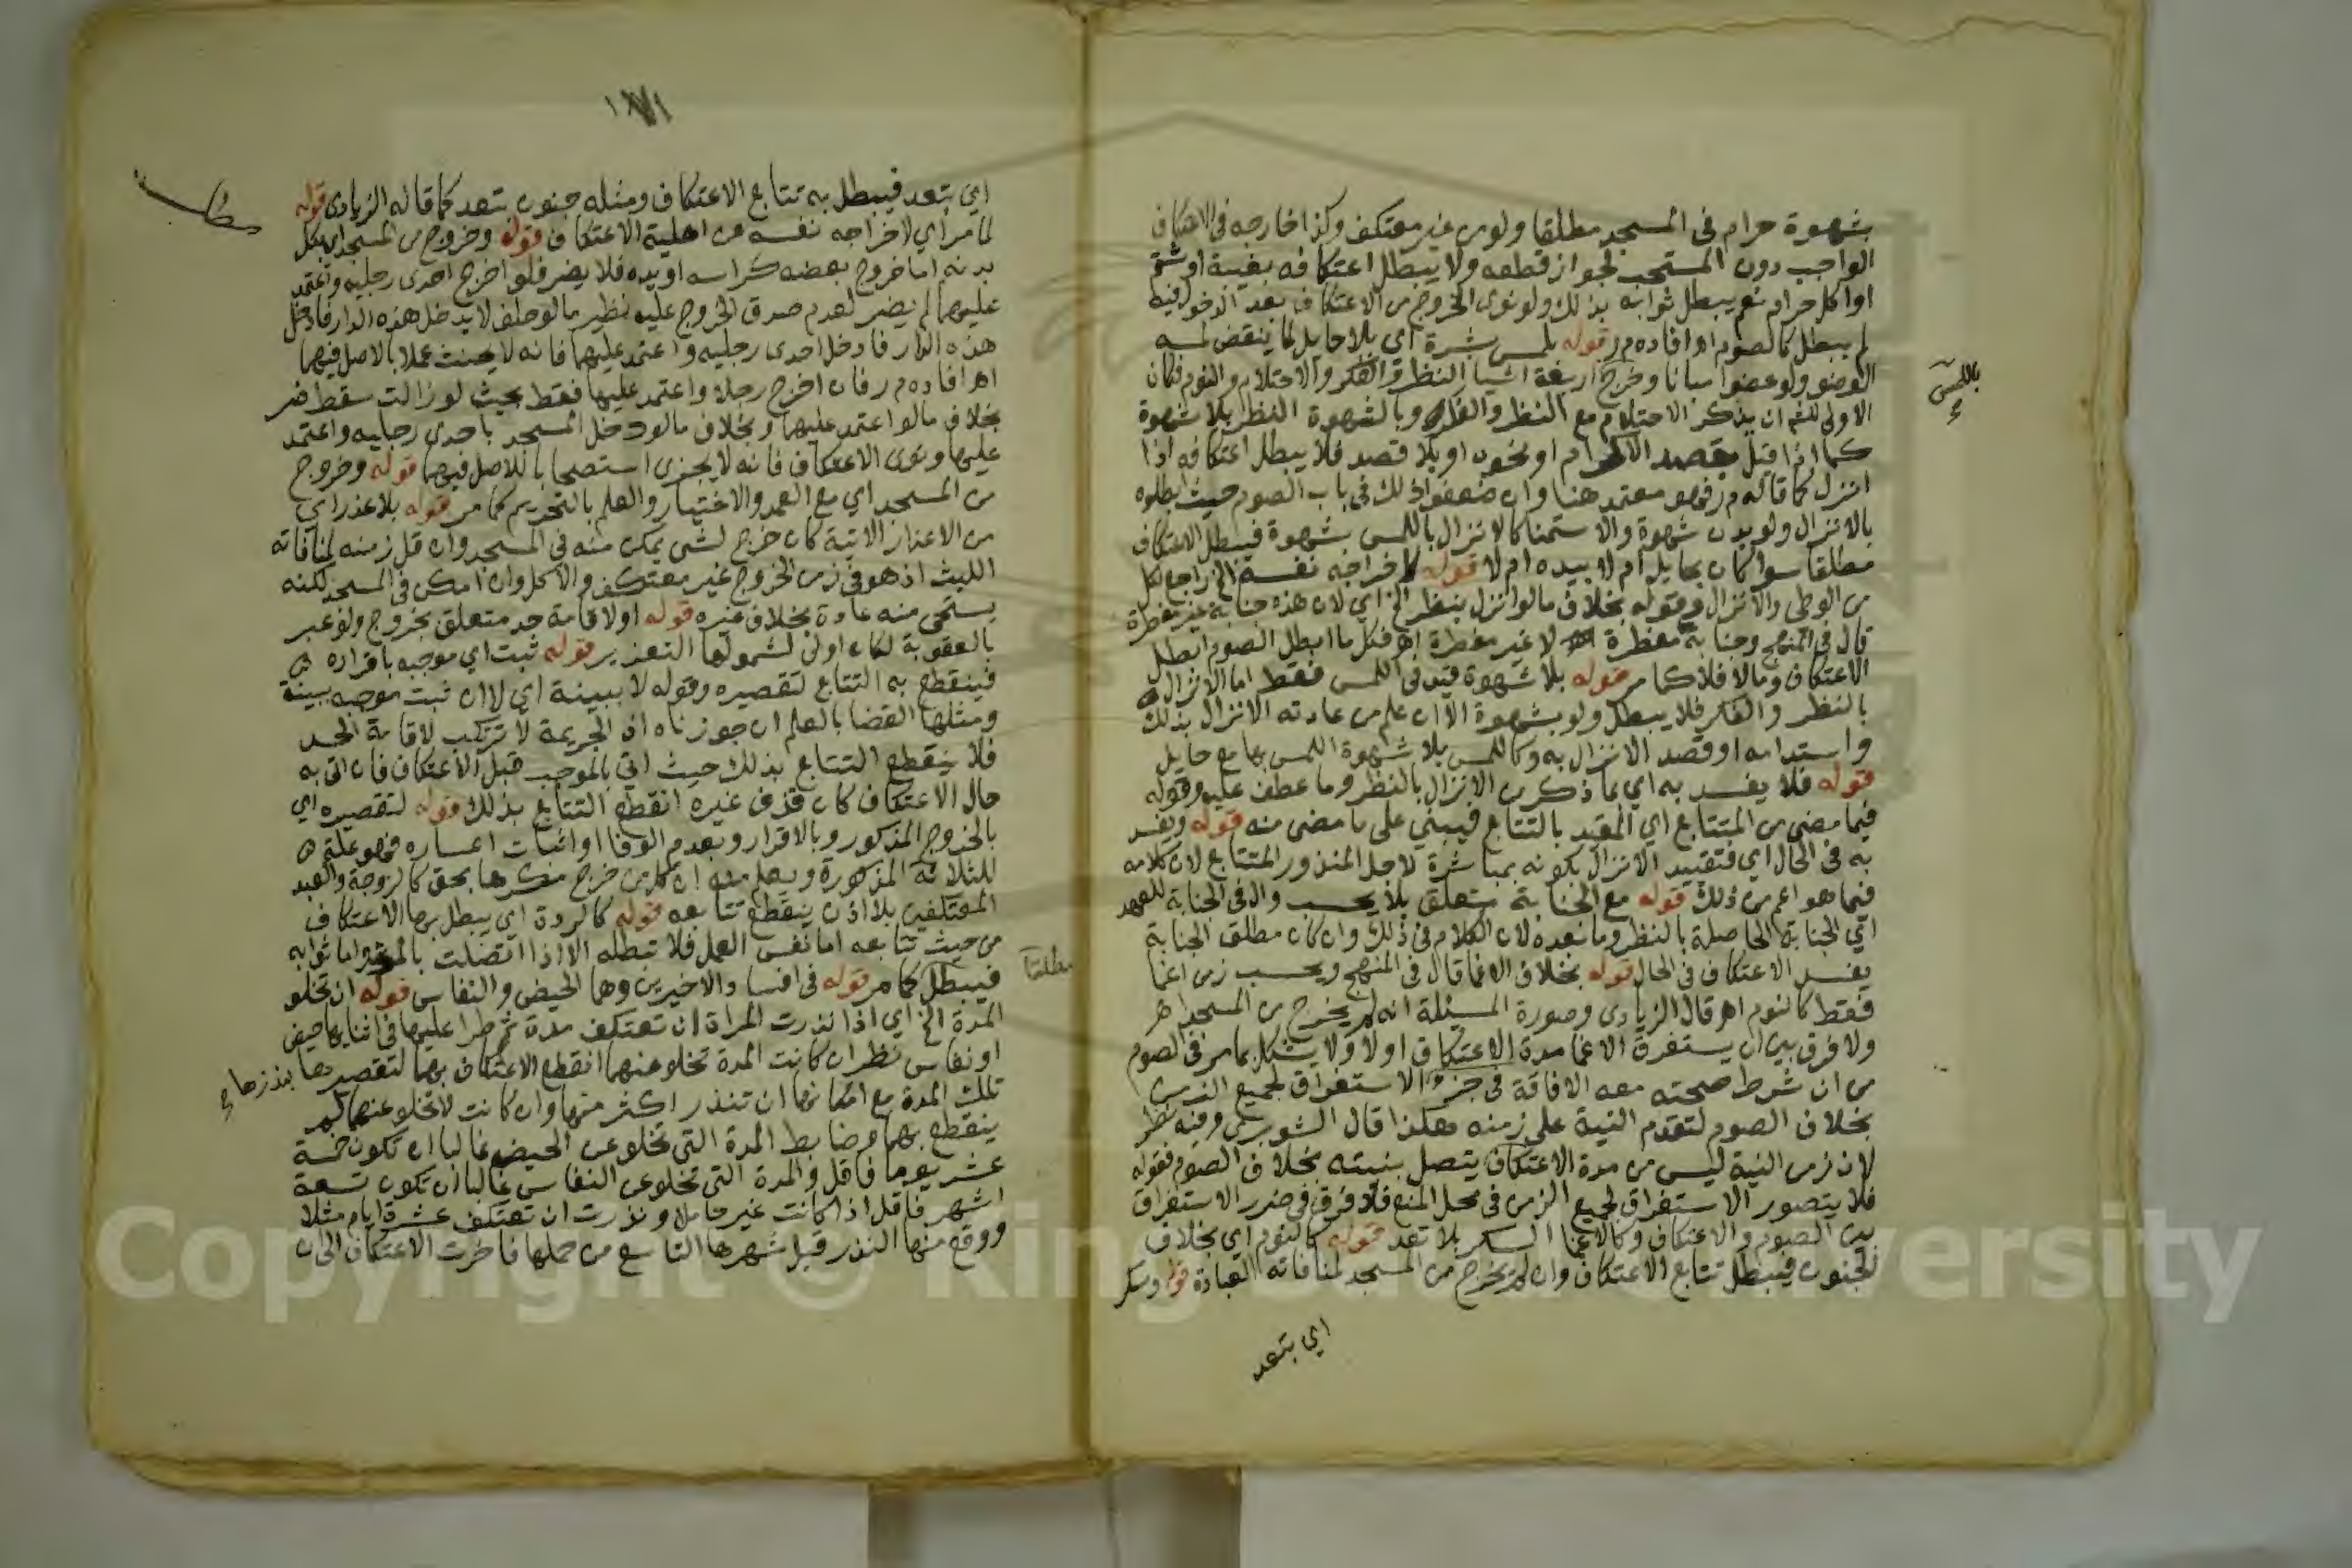 بشهوة حرام في المسجد مطلقا ولو من غير معتكف وكذا خارجه في الاعتكاف
الواجب دون المستحب لجواز قطعه ولا يبطل اعتكافه بغيبة او شتم
او اكل حرام نعم يبطل ثوابه بذلك ولو نوى الخروج من الاعتكاف بعد الدخول فيه
لم يبطل كالصوم اه افاده م ر قوله بلمس بشرة اي بلا حايل لما ينقض لمسه
الوضو ولو عضوا مبانا وخرج اربعة اشيا النظر والفكر والاحتلام والنوم فكان
الاولى للشم ان يذكر الاحتلام مع النظر والفكر وبالشهوة النظر بلا شهوة
كما اذا قبل بقصد الاكرام او نحوه او بلا قصد فلا يبطل اعتكافه اذا
انزل كما قاله م ر فهو معتمد هنا وان ضعفوا ذلك في باب الصوم حيث ابطلوه
بالانزال ولو بدون شهوة والاستمنا كالانزال باللمس بشهوة فيبطل الاعتكاف
مطلقا سوا كان بحايل ام لا بيده ام لا قوله لاخراجه نفسه الخ راجع لكل
من الوطي والانزال وقوله بخلاف ما لو انزل بنظر الخ اي لان هذه جنابة غير مفطرة
قال في المنهج وجنابة مفطرة لا غير مفطرة اه فكل ما ابطل الصوم ابطل
الاعتكاف وما لا فلا كما مر قوله بلا شهوة قيد في اللمس فقط اما الانزال
بالنظر والفكر فلا يبطل ولو بشهوة الا ان علم من عادته الانزال بذلك
واستدامه او قصد الانزال به وكاللمس بلا شهوة اللمس بها مع حايل
قوله فلا يفسد به اي بما ذكر من الانزال بالنظر وما عطف عليه وقوله
فيما مضى من المتتابع اي المقيد بالتتابع فيبني على ما مضى منه قوله ويفسد
به في الحال اي فتقييد الانزال بكونه بمباشرة لاجل المنذور المتتابع لان كلامه
فيما هو اعم من ذلك قوله مع الجنابة متعلق بلا يحسب وال في الجنابة للعهد
اي الجنابة الحاصلة بالنظر وما بعده لان الكلام في ذلك وان كان مطلق الجنابة
يفسد الاعتكاف في الحال قوله بخلاف الاغما قال في المنهج ويحسب زمن اغما
فقط كالنوم اه قال الزيادي وصورة المسئلة انه لم يخرج من المسجد اه
ولا فرق بين ان يستغرق الاغما مدة الاعتكاف اولا ولا يشكل بما مر في الصوم
من ان شرط صحته معه الافاقة في جزء الاستغراق لجميع الزمن
بخلاف الصوم لتقدم النية على زمنه هكذا قال الشوبري وفيه نظر
لان زمن النية ليس من مدة الاعتكاف يتصل بنيته بخلاف الصوم فقوله
فلا يتصور الاستغراق لجميع الزمن في محل المنع فلا فرق في ضرر الاستغراق
بين الصوم والاعتكاف وكالاغما السكر بلا تعد قوله كالنوم اي بخلاف
الجنون فيبطل تتابع الاعتكاف وان لم يخرج من المسجد لمنافاته العبادة قوله وسكر
اي بتعد
باللمس
١٧١
اي بتعد فيبطل به تتابع الاعتكاف ومثله جنون بتعد كما قاله الزيادي قوله
لما مر اي لاخراجه نفسه عن اهلية الاعتكاف قوله وخروج من المسجد اي بكل
بدنه اما خروج بعضه كراسه او يده فلا يضر فلو اخرج احدى رجليه واعتمد
عليهما لم يضر لعدم صدق الخروج عليه نظير ما لو حلف لا يدخل هذه الدار فادخل
هذه الدار فادخل احدى رجليه واعتمد عليهما فانه لا يحنث عملا بالاصل فيهما
اه افاده م ر فان اخرج رجلا واعتمد عليها فقط بحيث لو زالت سقط ضر
بخلاف ما لو اعتمد عليهما وبخلاف ما لو دخل المسجد باحدى رجليه واعتمد
عليها ونوى الاعتكاف فانه لا يجزى استصحابا للاصل فيهما قوله وخروج
من المسجد اي مع العمد والاختيار والعلم بالتحريم كما مر قوله بلا عذر اي
من الاعذار الاتية كان خرج لشي يمكن منه في المسجد وان قل زمنه لمنافاته
اللبث اذ هو في زمن الخروج غير معتكف والاكل وان امكن في المسجد لكنه
يستحى منه عادة بخلاف غيره قوله او لاقامة حد متعلق بخروج ولو عبر
بالعقوبة لكان اولى لشمولها التعزير قوله ثبت اي موجبه باقراره
فينقطع به التتابع لتقصيره وقوله لا ببينة اي لا ان ثبت موجبه ببينة
ومثلها القضا بالعلم ان جوزناه اذ الجريمة لا ترتكب لاقامة الحد
فلا ينقطع التتابع بذلك حيث اتي بالموجب قبل الاعتكاف فان اتي به
حال الاعتكاف كان قذف غيره انقطع التتابع بذلك قوله لتقصيره اي
بالخروج المذكور وبالاقرار وبعدم الوفا او اثبات اعساره فهو علة
للثلاثة المذكورة ويعلم منه ان كل من خرج مكرها بحق كالزوجة والعبد
المعتكفين بلا اذن ينقطع تتابعه قوله كالردة اي يبطل بها الاعتكاف
من حيث تتابعه اما نفس العمل فلا تبطله الا اذا اتصلت بالموت واما ثوابه
فيبطل كما مر قوله في افساد الاخيرين وهما الحيض والنفاس قوله ان تخلو
المدة الخ اي اذا نذرت المراة ان تعتكف مدة ثم طرا عليها في اثنايها حيض
او نفاس نظر ان كانت المدة تخلو عنهما انقطع الاعتكاف بهما لتقصيرها بنذرها
تلك المدة مع امكانها ان تنذر اكثر منها وان كانت لا تخلو عنهما لم
ينقطع بهما وضابط المدة التي تخلو عن الحيض غالبا ان تكون خمسة
عشر يوما فاقل والمدة التي تخلو عن النفاس غالبا ان تكون تسعة
اشهر فاقل اذا كانت غير حامل ونذرت ان تعتكف عشرة ايام مثلا
ووقع منها النذر قبل شهرها التاسع من حملها فاخرت الاعتكاف الى ان
مطلقا
Copyright © King Saud University